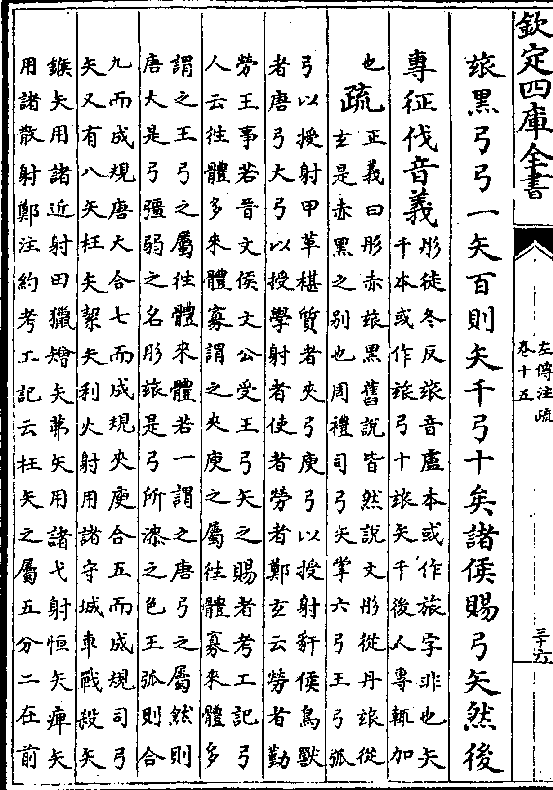 欽定四庫全書
左傳注疏
卷十五
三十六
玈黑弓弓一矢百則矢千弓十矣諸侯賜弓矢然後
專征伐音義
彤徒冬反玈音盧本或作旅字非也矢
千本或作玈弓十玈矢千後人專輒加
也
疏
正義曰彤赤玈黑舊說皆然說文彤從丹玈從
玄是赤黑之別也周禮司弓矢掌六弓王弓弧
弓以授射甲革椹質者夾弓庾弓以授射豻侯鳥獸
者唐弓大弓以授學射者使者勞者鄭玄云勞者勤
勞王事若晉文侯文公受王弓矢之賜者考工記弓
人云往體多來體寡謂之夾庾之屬往體寡來體多
謂之王弓之屬往體來體若一謂之唐弓之屬然則
唐大是弓彊弱之名彤玈是弓所漆之色王弧則合
九而成規唐大合七而成規夾庾合五而成規司弓
矢又有八矢枉矢絜矢利火射用諸守城車戰殺矢
鍭矢用諸近射田獵矰矢茀矢用諸弋射恒矢痺矢
用諸散射鄭注約考工記云枉矢之屬五分二在前